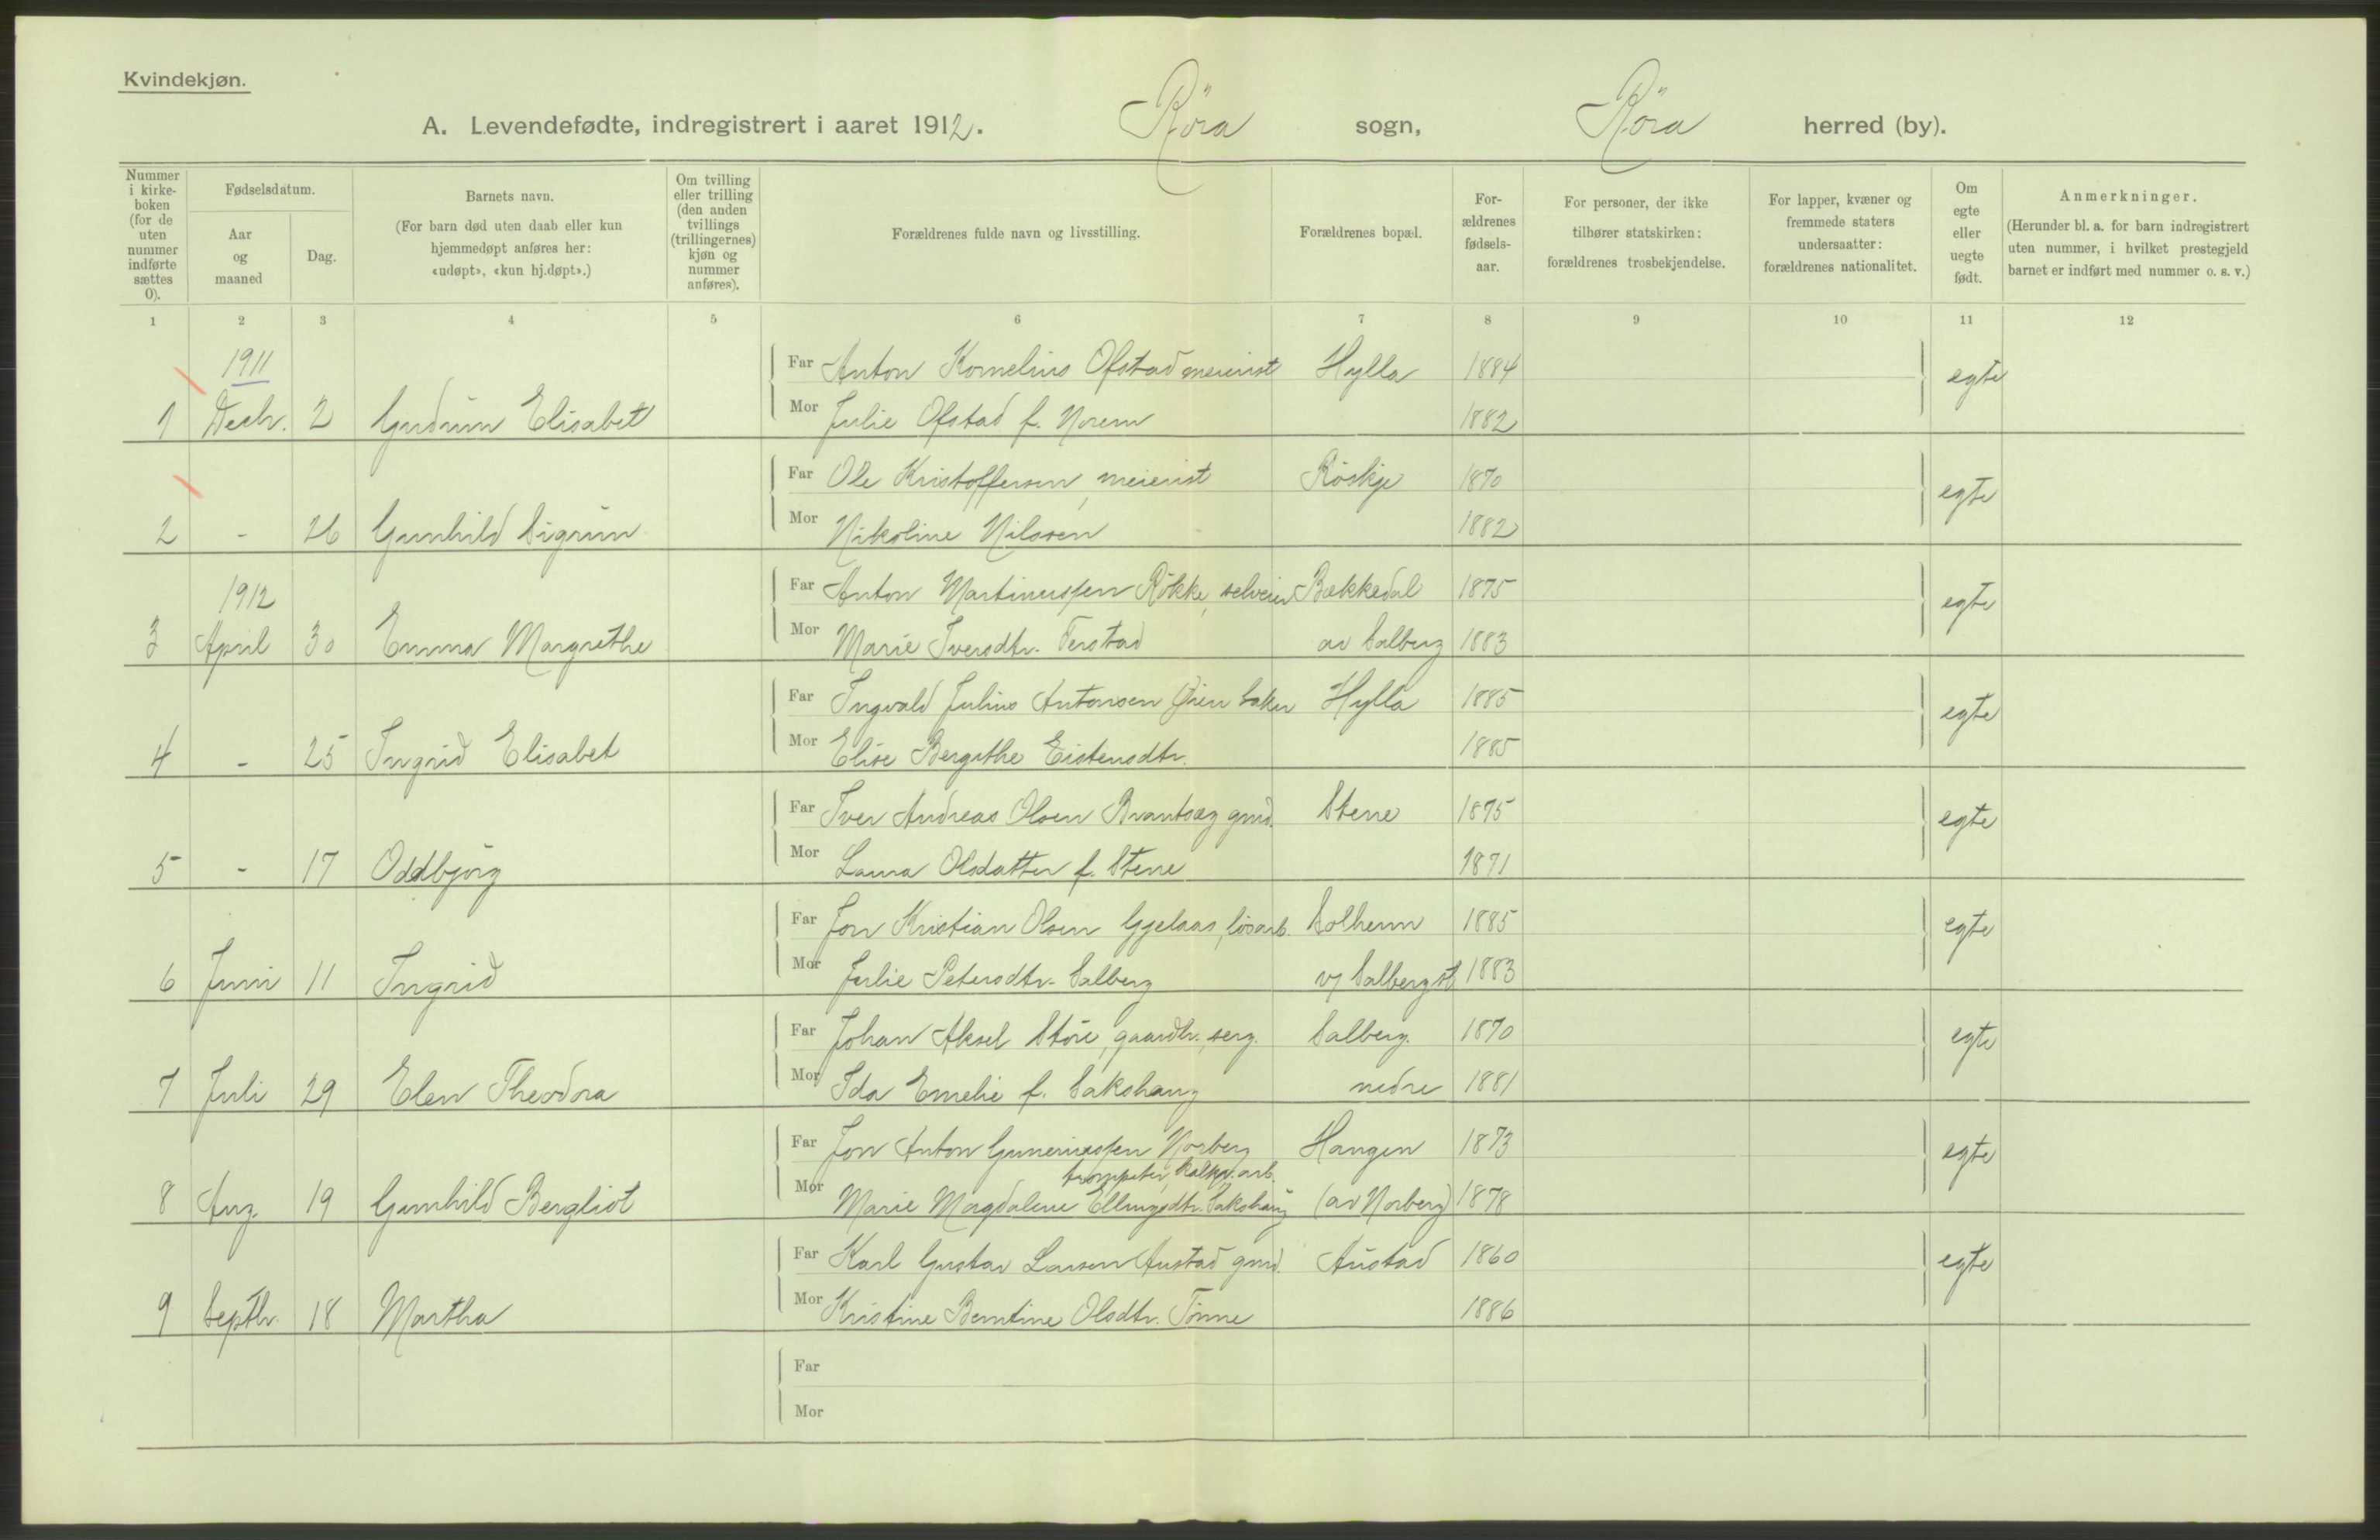 Kvindekjøn.
A. Levendefødte, indregistrert i aaret 1912. Röra sogn, Röra herred (by).
Nummer i kirke-boken (for de uten nummer indførte sættes 0).
Fødselsdatum.
Aar og maaned
Dag.
Barnets navn.
(For barn død uten daab eller kun hjemmedøpt anføres her: «udøpt», «kun hj.døpt».)
Om tvilling eller trilling (den anden tvillings (trillingernes) kjøn og nummer anføres).
Forældrenes fulde navn og livsstilling.
Forældrenes bopæl.
For-ældrenes fødsels-aar.
For personer, der ikke tilhører statskirken: forældrenes trosbekjendelse.
For lapper, kvæner og fremmede staters undersaatter: forældrenes nationalitet.
Om egte eller uegte født.
Anmerkninger.
(Herunder bl. a. for barn indregistrert uten nummer, i hvilket prestegjeld barnet er indført med nummer o. s. v.)
1 2 3 4 5 6 7 8 9 10 11 12
1911
Far Anton Kornelius Ofstad meierist Hylla 1884 egte
1 Decbr. 2 Gudrun Elisabet Mor Julie Ofstad f. Norem 1882
Far Ole Kristoffersen, meierist Röskje 1870 egte
2 - 26 Gunhild Sigrun Mor Nikoline Nilssen 1882
1912
Far Anton Martinussen Rökke, selveier Bækkedal 1875 egte
3 April 30 Emma Margrethe Mor Marie Iversdtr. Ferstad av Salberg 1883
Far Ingvald Julius Antonsen Øien baker Hylla 1885 egte
4 - 25 Ingrid Elisabet Mor Elise Bergithe Eistensdtr. 1885
Far Iver Andreas Olsen Brandtsæg gmd. Stene 1875 egte
5 - 17 Oddbjörg Mor Laura Olsdatter f. Stene 1871
Far Jon Kristian Olsen Gjelaas, lösarb. Solheim 1885 egte
6 Juni 11 Ingrid Mor Julie Petersdtr. Salberg v/ Salberg st. 1883
Far Johan Aksel Störe, gaardbr. serg. Salberg 1870 egte
7 Juli 29 Elen Theodora Mor Ida Emelie f. Sakshaug nedre 1881
Far Jon Anton Guneriussen Norberg Haugen 1873 egte
trompeter, kalkv. arb.
8 Aug. 19 Gunhild Bergliot Mor Marie Magdalene Ellingsdtr. Sakshaug (av Norberg) 1878
Far Karl Gustav Larsen Austad gmd. Austad 1860 egte
9 Septbr. 18 Martha Mor Kristine Berntine Olsdtr. Tönne 1886
Far
Mor